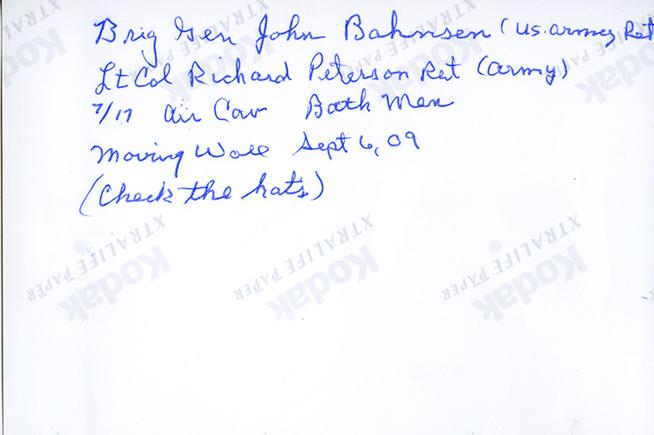 Brig Gen John Bahnsen (US. army Ret
Lt Col Richard Peterson Ret (army)
7/17 air Cav Both Men
Moving Wall Sept 6, 09
(Check the hats)
XTRALIFE PAPER
Kodak
XTRALIFE PAPER
Kodak
XTRALIFE PAPER
Kodak